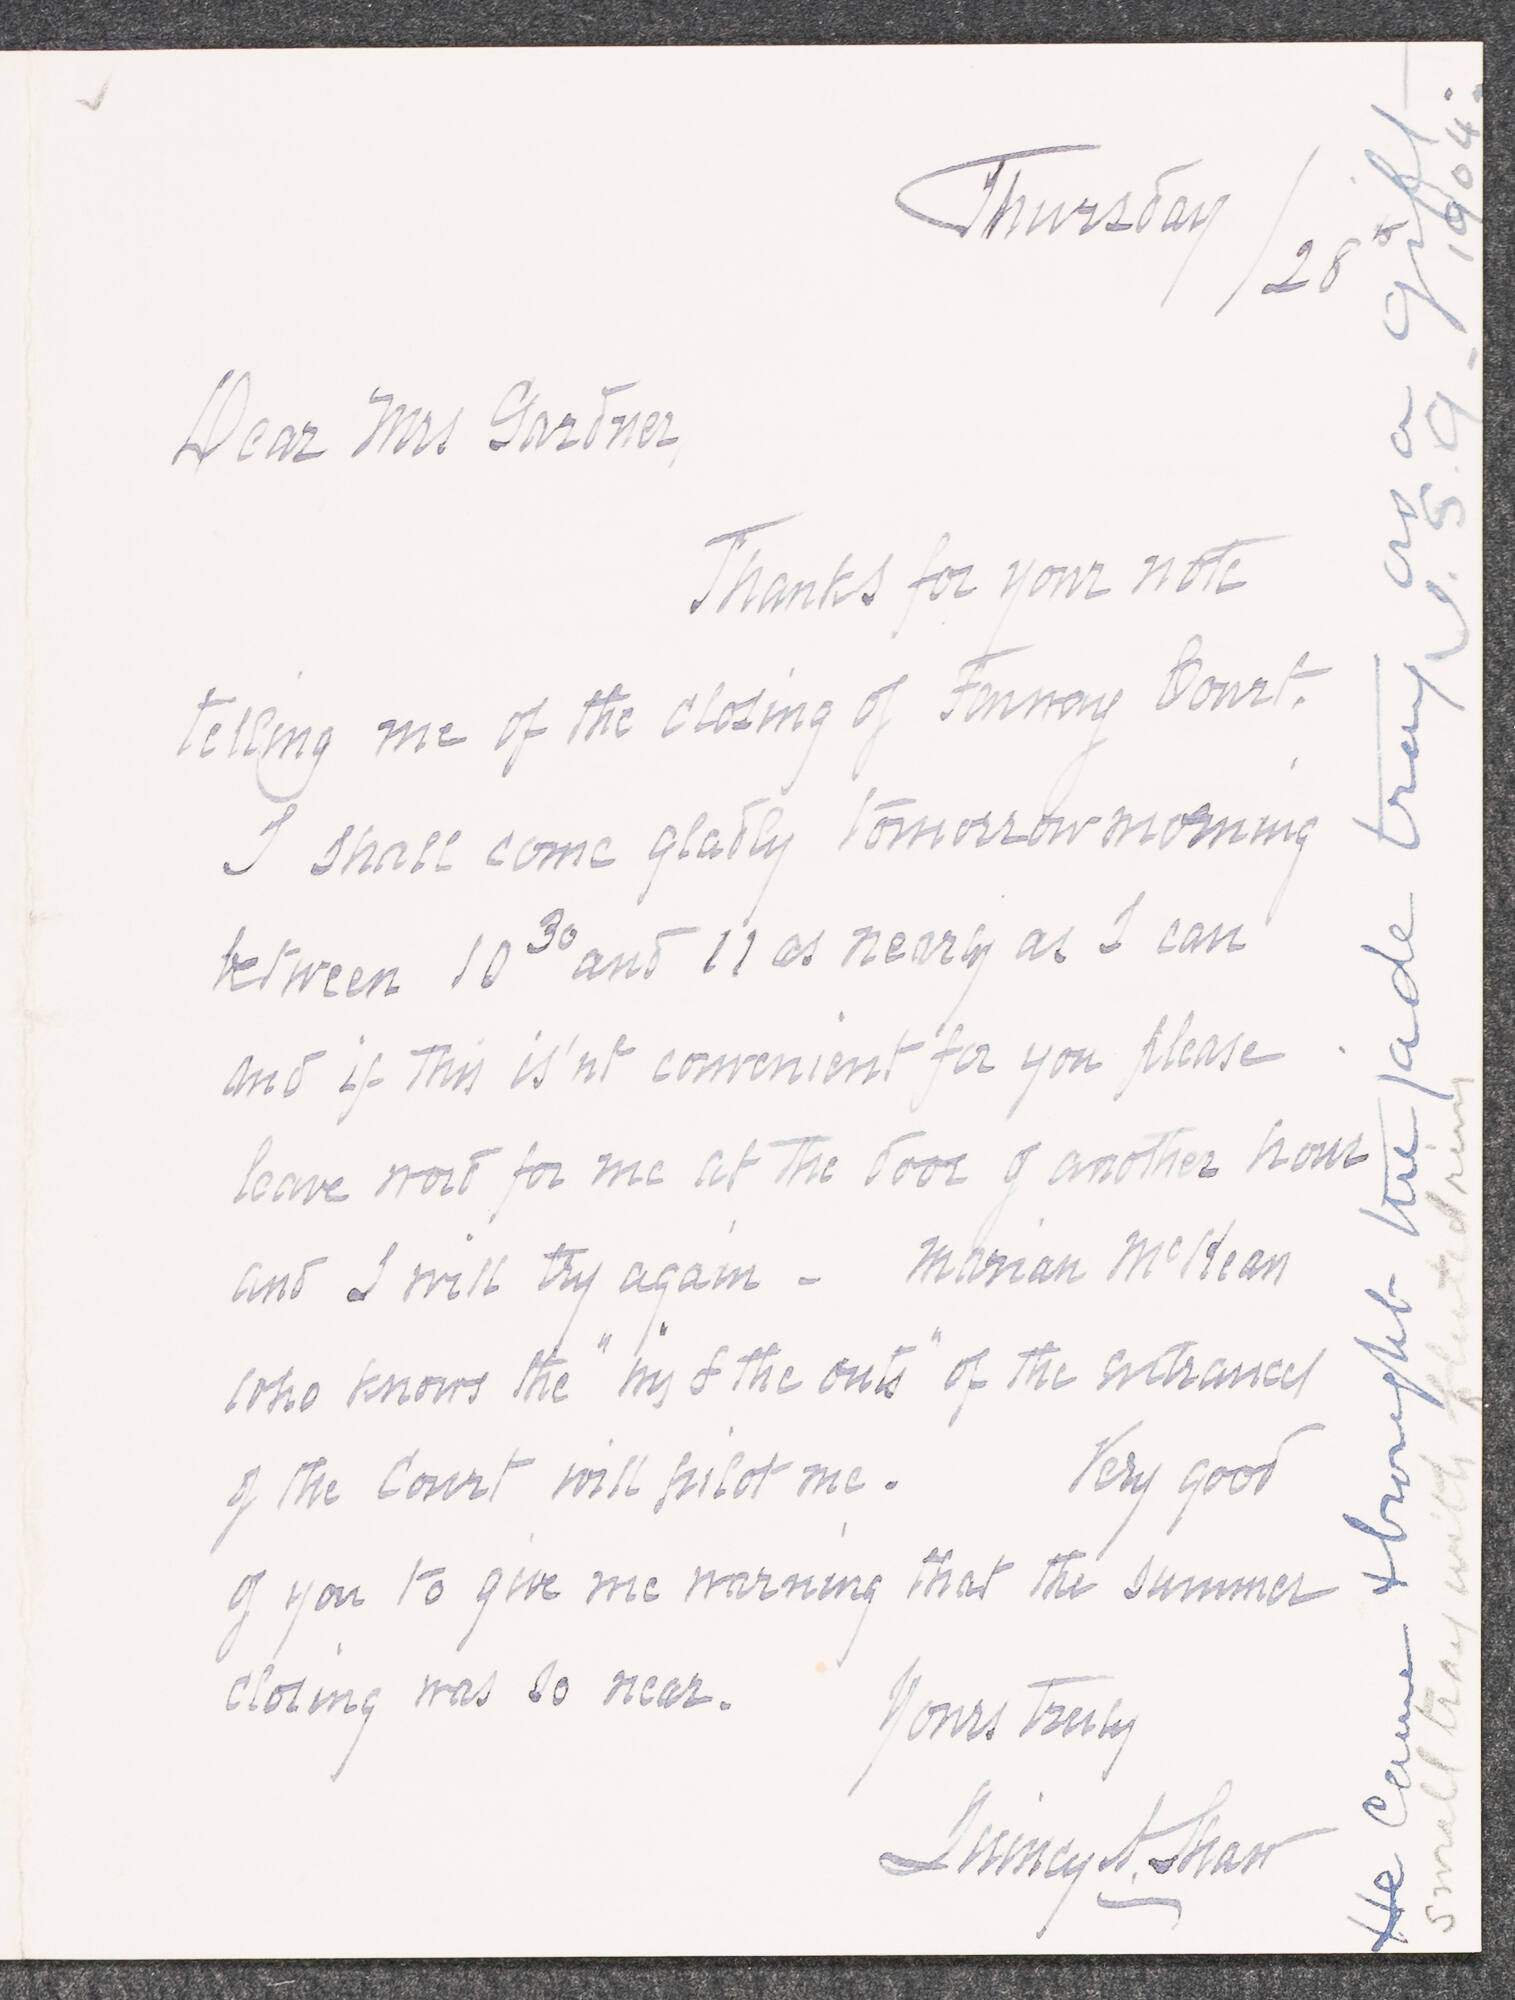 Thursday / 28th
Dear Mrs Gardner,
Thanks for your note
telling me of the closing of Fenway Court.
I shall come gladly tomorrow morning
between 10 30 and 11 as nearly as I can
and if this is'nt convenient for you please
leave word for me at the door of another hour
and I will try again - Marian McKean
who knows the "ins & the outs" of the entrances
of the Court will pilot me. Very good
of you to give me warning that the summer
closing was so near.
Yours truly
Quincy A. Shaw
He came & brought the jade tray as a gift -
I. S. G. - 1904.
small tray with fluted rim